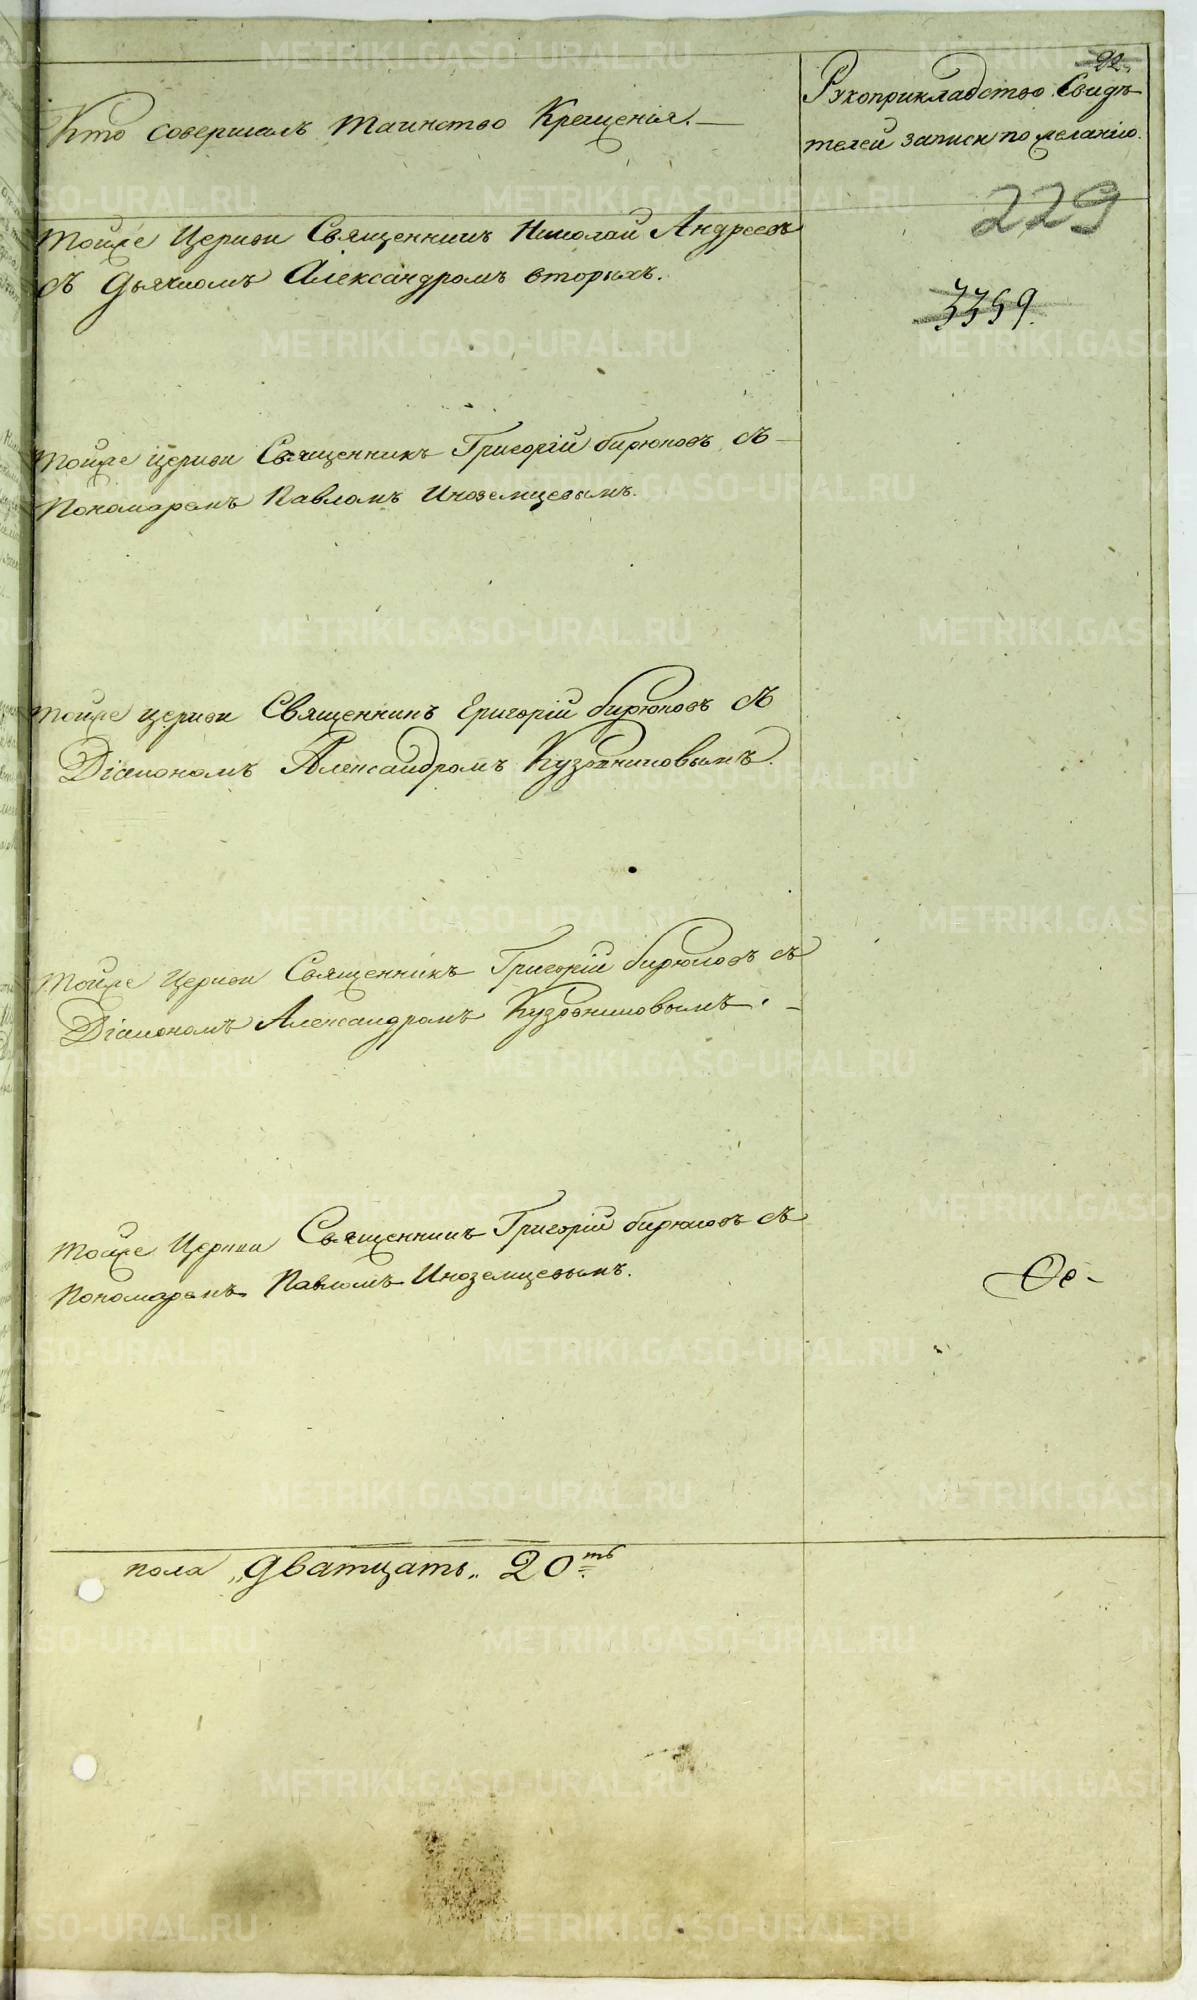 22.
Кто совершалъ таинство Крещенія.—
Рукоприкладство Свидѣ
телей записи по желанію.
229
Тойже Церкви Священникъ Николай Андреевъ
съ Дьячкомъ Александромъ вторыхъ.
3359.
Тойже церкви Священникъ Григорій бирюковъ съ
Пономаремъ Павломъ Иноземцевымъ.
Тойже церкви Священникъ Григорій бирюковъ съ
Діакономъ Александромъ Кузовниковымъ.
Тойже Церкви Священникъ Григорій бирюковъ съ
Діакономъ Александромъ Кузовниковымъ.
Тойже Церкви Священникъ Григорій бирюковъ съ
Пономаремъ Павломъ Иноземцевымъ.
пола „дватцать„ 20ть
METRIKI.GASO-URAL.RU